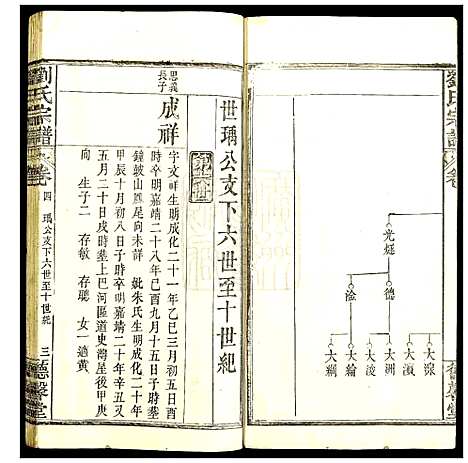 劉氏宗譜
卷
光煶
德
淦
大濲
大灝
大洲
大淩
大綸
大綱
世瑀公支下六世至十世紀
思義長子
成祥
字文祥生明成化二十一年乙巳三月初五日酉
時卒明嘉靖二十八年己酉九月十五日子時塟
鐘鼓山㷼尾向未詳 妣朱氏生明成化二十年
甲辰十月初八日子時卒明嘉靖二十年辛丑又
五月二十日戌時塟上巴河區道史灣屋後甲庚
向 生子二 存敏 存聰 女一適黄
劉氏宗譜
卷四 瑀公支下六世至十世紀
三
德馨堂